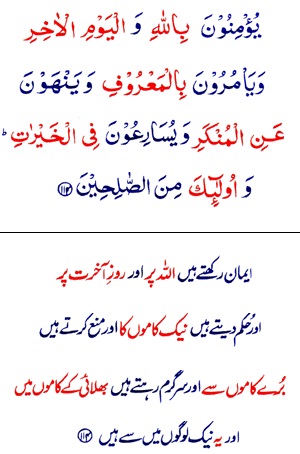 يُؤْمِنُوْنَ بِاللّٰهِ وَ الْيَوْمِ الْاٰخِرِ
وَيَاْمُرُوْنَ بِالْمَعْرُوْفِ وَيَنْهَوْنَ
عَنِ الْمُنْكَرِ وَيُسَارِعُوْنَ فِى الْخَيْرٰتِ ؕ
وَ اُولٰٓئِكَ مِنَ الصّٰلِحِيْنَ ﴿۱۱۴﴾
ایمان رکھتے ہیں اللہ پر اور روزِ آخرت پر
اور حُکم دیتے ہیں نیک کاموں کا اور منع کرتے ہیں
بُرے کاموں سے اور سرگرم رہتے ہیں بھلائی کے کاموں میں
اور یہ نیک لوگوں میں سے ہیں ﴿۱۱۴﴾